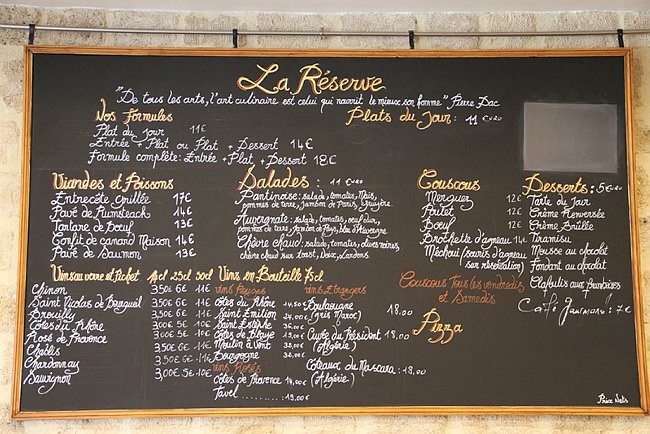 La Réserve
"De tous les arts, l'art culinaire est celui qui nourrit le mieux son homme" Pierre Dac
Nos Formules
Plat du jour 11€
Entrée + Plat ou Plat + Dessert 14€
Formule complète: Entrée + Plat + Dessert 18€
Plats du Jour : 11 €
Viandes et Poissons
Entrecôte Grillée 17€
Pavé de Rumsteack 14€
Tartare de Bœuf 13€
Confit de canard Maison 14€
Pavé de Saumon 13€
Salades : 11 €
Pantinoise: salade, tomates, Maïs,
pommes de terre, Jambon de Paris, Gruyère
Auvergnate: salade, tomates, oeuf dur,
pommes de terre, Jambon de Pays, bleu d'Auvergne
Chèvre chaud: salade, tomates, olives noires,
chèvre chaud sur toast, Lardons
Couscous
Merguez 12€
Poulet 12€
Bœuf 12€
Brochette d'agneau 14€
Méchoui (souris d'agneau
sur réservation)
Couscous Tous les vendredis
et Samedis
Desserts: 5€
Tarte du Jour
Crème Renversée
Crème Brûlée
Tiramisu
Mousse au chocolat
Fondant au chocolat
Clafoutis aux
Café Gourmand : 7€
Vins au verre et Pichet 25cl 50cl
Chinon 3,50€ 6€ 11€
Saint Nicolas de Bourgueil 3,50€ 6€ 11€
Brouilly 3,50€ 6€ 11€
Côtes du Rhône 3,00€ 5€ 10€
Rosé de Provence 3,00€ 5€ 10€
Chablis
Chardonnay 3,50€ 6€ 11€
Sauvignon 3,00€ 5€ 10€
Vins en Bouteille 75cl
Vins Rouges
Côtes du Rhône 14,50€
Saint Emilion
Saint Estèphe
Côtes de Blaye
Moulin à Vent
Bourgogne
Vins Rosés
Côtes de Provence
Tavel ......... : 19,00€
Vins Etrangers
Boulaouane 18,00
(Gris Maroc)
Cuvée du Président 18,00
(Algérie)
Coteaux du Mascara : 18,00
(Algérie)
Pizza
Prix Nets